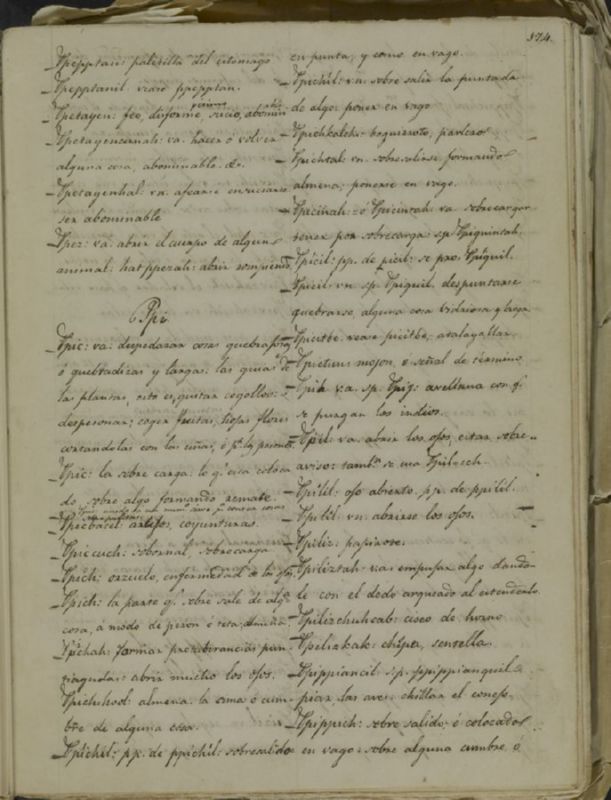 174.
Ppepptan: paletilla del estomago
Ppepptanil. vease ppepptan.
Ppetayen: feo, disforme, sucio, abomin
Ppetayencunah: va. hacer ó volver
alguna cosa, abominable. &c.
Ppetayenhal: vn. afearse ensuciarse
ser abominable
Ppez: va. abrir el cuerpo de algun
animal: hatppezah: abrir rompiendo
Ppi
Ppic: va: despedazar cosas quebradizas
ó quebradizas y largas: las guias de
las plantas, esto es, quitar cogollos:
despezonar; coger frutas, hojas flores
cortandolas con las uñas, ó
Ppic: la sobre carga: lo q.e esta coloca
do, sobre algo formando remate.
Ppicbacil: artejos, coyunturas.
Ppiccuch: sobornal, sobrecarga
Ppich: orzuelo, enfermedad de los ojos
Ppich: la parte q.e sobre sale de alg.a
cosa, á modo de pezon ó teta, almena.
Ppichah: formar protuberancias pun
tiagudas: abrir mucho los ojos.
Ppichhool: almena. la cima ó cum
bre de alguna cosa.
Ppichil: pp. de ppichil: sobresalido
en punta, y como en vago.
Ppichil: vn. sobre salir la puntada
de algo: poner en vago
Ppichkalek: boquirroto, parlero
Ppichtal: vn. sobresalirse formando
almena; ponerse en vago.
Ppicinah: ó Ppicintah: va. sobrecargar
tener por sobrecarga: sp. Ppiquintah.
Ppicil: pp. de picil: se pro. Ppiquil.
Ppicil: vn. sp. Ppiquil, despuntarse
quebrarse, alguna cosa vidriosa y larga
Ppicitbe. vease picitbe, atalayallar
Ppictun: mojon, ó señal de término
Ppih va. sp. Ppig: avellana con q.e
se purgan los indios.
Ppil: va. abrir los ojos, estar sobre
aviso: tamb.n se usa Ppilicch
Ppilil: ojo abierto. p.p. de ppilil.
Ppilil: vn. abrirse los ojos.
Ppiliz: papirote.
Ppiliztah: va. empujar algo dando
le con el dedo arqueado al estenderlo
Ppilizchuheab: cisco de horno
Ppelizkak: chispa, sentella
Ppippiancil: s.p. ppippianquil.
piar las aves: chillar el conejo.
Ppippich: sobre salido; ó colocado
en vago: sobre alguna cumbre, ó